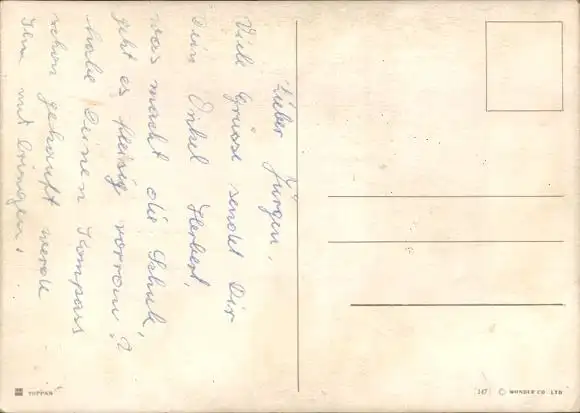 Lieber Jürgen,
Viele Grüsse sendet Dir
Dein Onkel Herbert,
was macht die Schule,
geht es fleisig vorran?
habe Deinen Kompass
schon gekauft werde
Ihn mit bringen.
TOPPAN
147 © WONDER CO. LTD